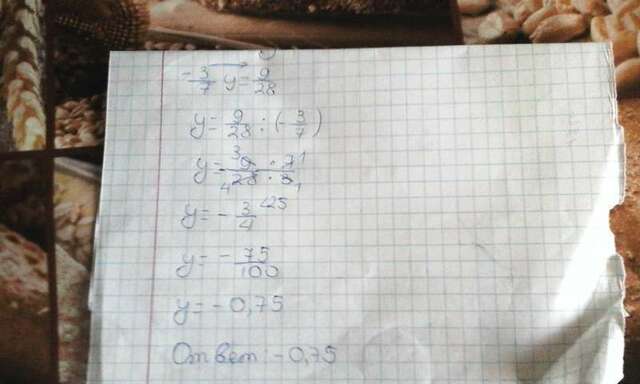 -3/7 y = 9/28
y = 9/28 : (-3/7)
y = -(9³ · 7¹)/(28₄ · 3₁)
y = -3/4 ·25
y = -75/100
y = -0,75
Ответ: -0,75